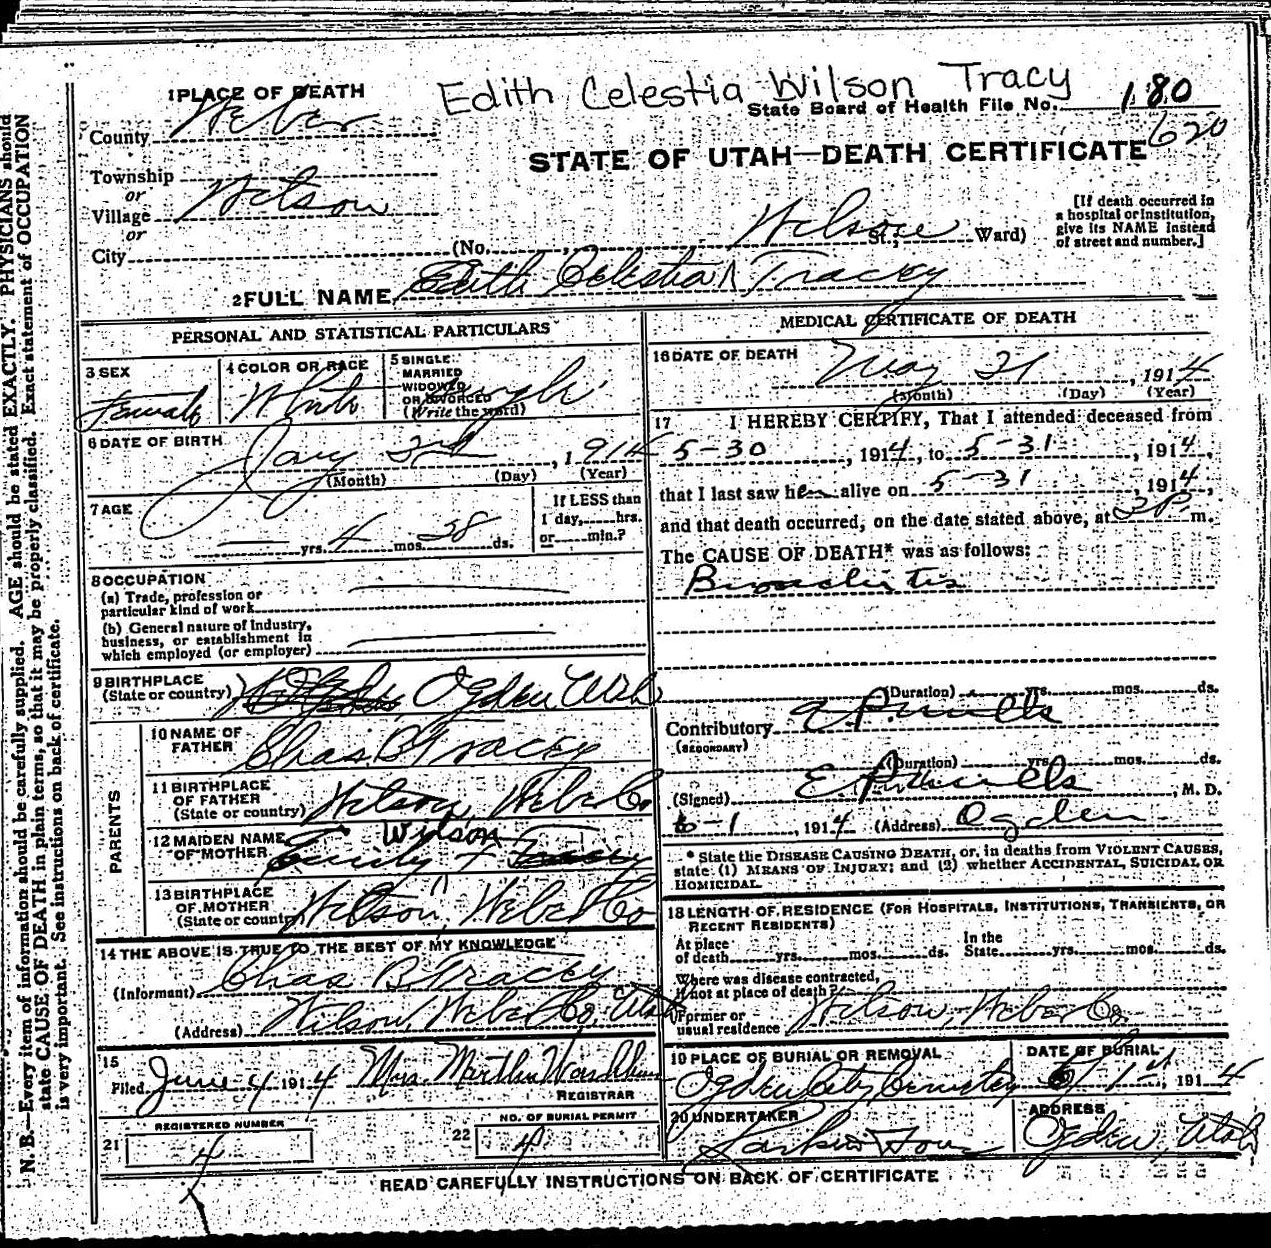 Edith Celestia Wilson Tracy
1 PLACE OF DEATH
State Board of Health File No. 180
620
County Weber
STATE OF UTAH—DEATH CERTIFICATE
Township
or
Village Wilson
or
City
(No. Wilson St.; Ward)
[If death occurred in
a hospital or institution,
give its NAME instead
of street and number.]
2 FULL NAME Edith Celestial Tracey
PERSONAL AND STATISTICAL PARTICULARS
3 SEX
Female
4 COLOR OR RACE
White
5 SINGLE
MARRIED
WIDOWED
OR DIVORCED
(Write the word)
Single
6 DATE OF BIRTH
Jany 3rd, 1914
(Month) (Day) (Year)
7 AGE
yrs. 4 mos. 28 ds.
If LESS than
1 day, hrs.
or min.?
8 OCCUPATION
(a) Trade, profession or
particular kind of work
(b) General nature of Industry,
business, or establishment in
which employed (or employer)
9 BIRTHPLACE
(State or country) Ogden Utah
PARENTS
10 NAME OF
FATHER Chas B Tracey
11 BIRTHPLACE
OF FATHER
(State or country) Wilson, Weber Co
12 MAIDEN NAME
OF MOTHER Wilson
Emily F Tracey
13 BIRTHPLACE
OF MOTHER
(State or country) Wilson, Weber Co
14 THE ABOVE IS TRUE TO THE BEST OF MY KNOWLEDGE
(Informant) Chas B. Tracey
(Address) Wilson, Weber Co, Utah
15
Filed June 4 1914 Mrs. Martha
REGISTRAR
REGISTERED NUMBER
21 4
NO. OF BURIAL PERMIT
22 4
MEDICAL CERTIFICATE OF DEATH
16 DATE OF DEATH
May 31, 1914
(Month) (Day) (Year)
17 I HEREBY CERTIFY, That I attended deceased from
5-30, 1914, to 5-31, 1914,
that I last saw her alive on 5-31, 1914,
and that death occurred, on the date stated above, at 3P. m.
The CAUSE OF DEATH* was as follows:
Bronchitis
(Duration) yrs. mos. ds.
Contributory
(SECONDARY)
(Duration) yrs. mos. ds.
(Signed) E P Mills, M. D.
6-1, 1914 (Address) Ogden
* State the DISEASE CAUSING DEATH, or, in deaths from VIOLENT CAUSES,
state (1) MEANS OF INJURY; and (2) whether ACCIDENTAL, SUICIDAL OR
HOMICIDAL.
18 LENGTH OF RESIDENCE (FOR HOSPITALS, INSTITUTIONS, TRANSIENTS, OR
RECENT RESIDENTS)
At place
of death yrs. mos. ds.
In the
State yrs. mos. ds.
Where was disease contracted,
if not at place of death?
Former or
usual residence Wilson, Weber Co.
19 PLACE OF BURIAL OR REMOVAL
Ogden City Cemetery
DATE OF BURIAL
6/1st, 1914
20 UNDERTAKER
Larkin & Sons
ADDRESS
Ogden, Utah
READ CAREFULLY INSTRUCTIONS ON BACK OF CERTIFICATE
N. B.—Every item of information should be carefully supplied. AGE should be stated EXACTLY. PHYSICIANS should
state CAUSE OF DEATH in plain terms, so that it may be properly classified. Exact statement of OCCUPATION
is very important. See instructions on back of certificate.